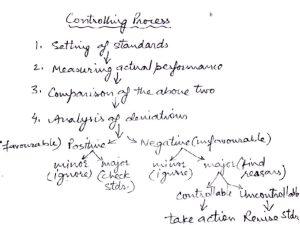 Controlling Process
1. Setting of standards
2. Measuring actual performance
3. Comparison of the above two
4. Analysis of deviations
(favourable) Positive Negative (unfavourable)
minor major minor major (find
(ignore) (check (ignore) reasons)
stds.)
controllable Uncontrollable
take action Revise Stds.